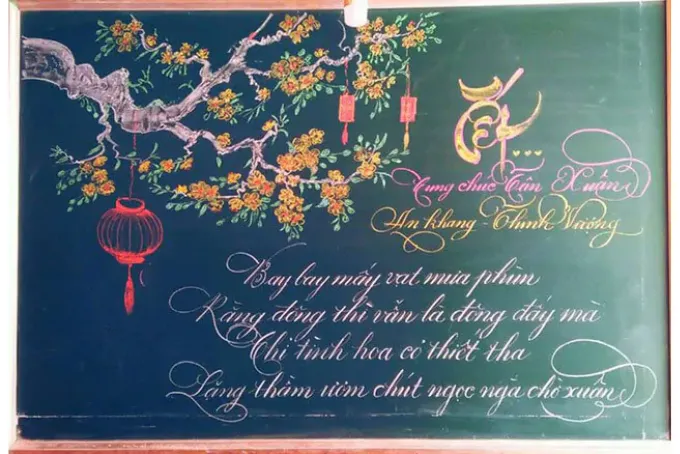 Tết...
Cung chúc Tân Xuân
An Khang - Thịnh Vượng
Bay bay mấy vạt mưa phùn
Rằng đông thì vẫn là đông đấy mà
Thì tình hoa cỏ thiết tha
Lặng thầm ươm chút ngọc ngà chờ xuân